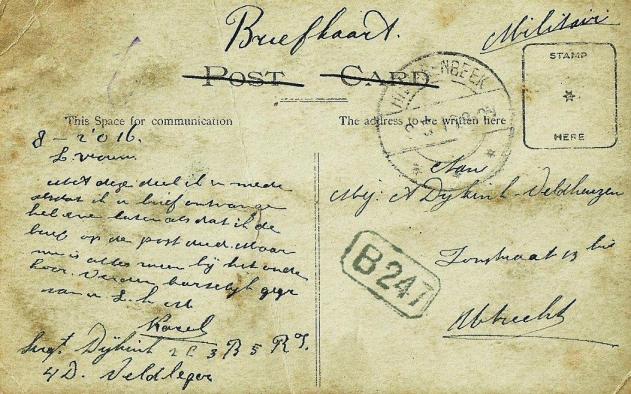 Briefkaart.
Militair
POST CARD
STAMP
HERE
This Space for communication
The address to be written here
8-2 016.
L. vrouw.
Met deze deel ik u mede
alsdat ik u brief ontvange
heb even laten alsdat ik de
brief op de post deed. Maar
nu is alles weer bij het oude
hoor. Verder hartelijk gegr
van u L. h. et
Karel
Sergt. Dijkink 2 C 3 B 5 R I.
4 D. Veldleger
Aan
Mej. A Dijkink-Veldhuizen
straat 13 bis
Utrecht
B 247